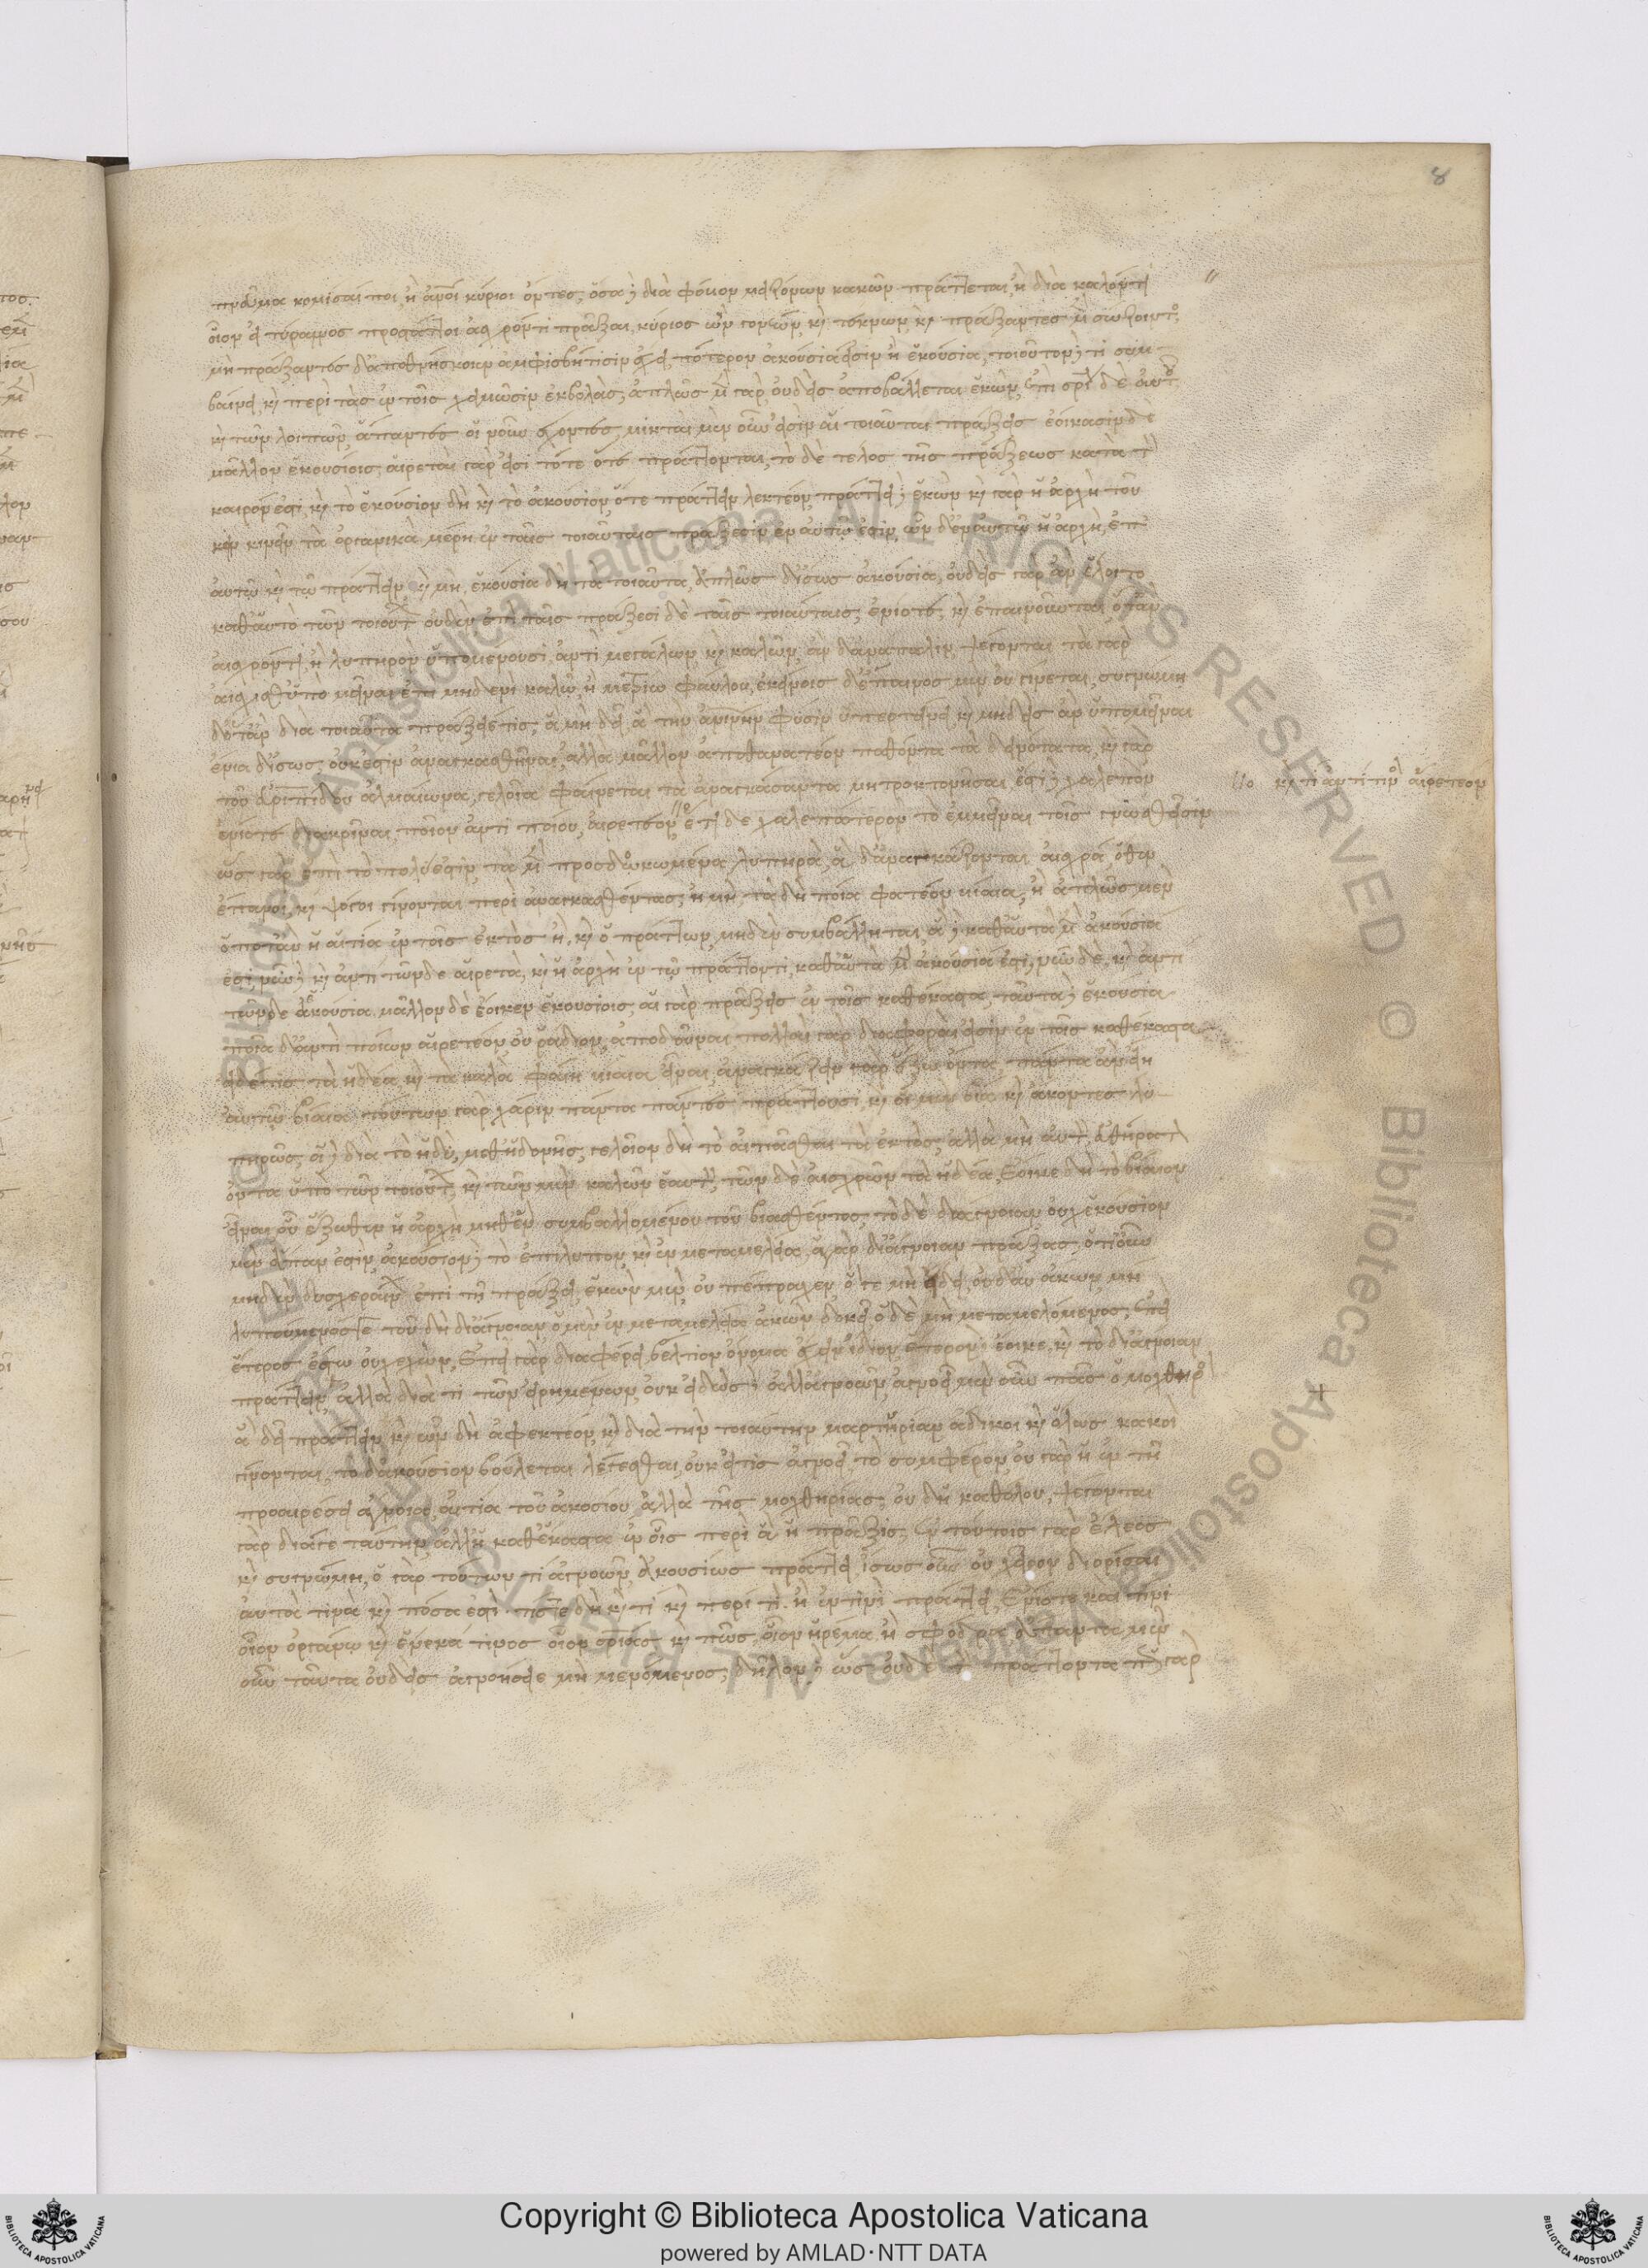 πνεῦμα κομίσαι ποι, ἢ ἄνθρωποι κύριοι ὄντες, ὅσα δὲ διὰ φόβον μειζόνων κακῶν πράττεται, ἢ διὰ καλόν τι
οἷον εἰ τύραννος προστάττοι αἰσχρόν τι πρᾶξαι, κύριος ὢν γονέων, καὶ τέκνων, καὶ πράξαντες μὲν σώζοιντο
μὴ πράξαντος δ' ἀποθνήσκοιεν ἀμφισβήτησιν ἔχει πότερον ἀκούσιά εἰσιν ἢ ἑκούσια, τοιοῦτον δέ τι συμ-
βαίνει καὶ περὶ τὰς ἐν τοῖς χειμῶσιν ἐκβολάς, ἁπλῶς μὲν γὰρ οὐδεὶς ἀποβάλλεται ἑκών, ἐπὶ σωτηρίᾳ δὲ αὐτοῦ
καὶ τῶν λοιπῶν, ἅπαντες οἱ νοῦν ἔχοντες, μικταὶ μὲν οὖν εἰσιν αἱ τοιαῦται πράξεις ἐοίκασιν δὲ
μᾶλλον ἑκουσίοις, αἱρεταὶ γάρ εἰσι τότε ὅτε πράττονται, τὸ δὲ τέλος τῆς πράξεως κατὰ τὸν
καιρόν ἐστι, καὶ τὸ ἑκούσιον δὴ καὶ τὸ ἀκούσιον, ὅτε πράττειν λεκτέον, πράττει δὲ ἑκών καὶ γὰρ ἡ ἀρχὴ τοῦ
κινεῖν τὰ ὀργανικὰ μέρη ἐν ταῖς τοιαύταις πράξεσιν ἐν αὐτῷ ἐστιν, ὧν δ' ἐν αὐτῷ ἡ ἀρχὴ, ἐπ'
αὐτῷ καὶ τῷ πράττειν καὶ μή, ἑκούσια δὴ τὰ τοιαῦτα, ἁπλῶς δ' ἴσως ἀκούσια, οὐδεὶς γὰρ ἂν ἕλοιτο
καθ' αὑτὸ τῶν τοιούτων οὐδὲν ἐπὶ ταῖς πράξεσι δὲ ταῖς τοιαύταις, ἐνίοτε, καὶ ἐπαινοῦνται ὅταν
αἰσχρόν τι ἢ λυπηρὸν ὑπομένουσι, ἀντὶ μεγάλων, καὶ καλῶν, ἂν δ' ἀνάπαλιν, ψέγονται τὰ γὰρ
αἴσχισθ' ὑπομεῖναι ἐπὶ μηδενὶ καλῷ, ἢ μετρίῳ φαύλου, ἐν ἐνίοις δ' ἔπαινος μὲν οὐ γίνεται, συγγνώμη
δ' ὅταν διὰ τοιαῦτα πράξει τις, ἃ μὴ δεῖ ἃ τὴν ἀνθρωπίνην φύσιν ὑπερτείνει καὶ μηδεὶς ἂν ὑπομείναι
ἔνια δ' ἴσως, οὐκ ἔστιν ἀναγκασθῆναι, ἀλλὰ μᾶλλον ἀποθανατέον παθόντα τὰ δεινότατα, καὶ γὰρ
τὸν Εὐριπίδου Ἀλκμαίωνα, γελοῖα φαίνεται τὰ ἀναγκάσαντα μητροκτονῆσαι, ἔστι δὲ χαλεπὸν
ἐνίοτε διακρῖναι, ποῖον ἀντὶ ποίου, αἱρετέον, ἔτι δὲ χαλεπώτερον τὸ ἐμμεῖναι τοῖς γνωσθεῖσιν
καὶ τί ἀντὶ τίνος αἱρετέον
ὡς γὰρ ἐπὶ τὸ πολύ ἐστιν, τὰ μὲν προσδοκώμενα λυπηρὰ, ἃ δ' ἀναγκάζονται αἰσχρά, ὅθεν
ἔπαινοι, καὶ ψόγοι γίνονται περὶ ἀναγκασθέντας, ἢ μή, τὰ δὴ ποῖα φατέον βίαια, ἢ ἁπλῶς μὲν
ὁπόταν ἡ αἰτία ἐν τοῖς ἐκτὸς ᾖ, καὶ ὁ πράττων, μηδὲν συμβάλληται, ἃ δὲ καθ' αὑτὰ μὲν ἀκούσιά
ἐστι, νῦν δὲ καὶ ἀντὶ τῶνδε αἱρετά, καὶ ἡ ἀρχὴ ἐν τῷ πράττοντι, καθ' αὑτὰ μὲν ἀκούσιά ἐστι, νῦν δὲ, καὶ ἀντὶ
τῶνδε ἑκούσια, μᾶλλον δὲ ἔοικεν ἑκουσίοις, αἱ γὰρ πράξεις ἐν τοῖς καθέκαστα, ταῦτα δὲ ἑκούσια
ποῖα δ' ἀντὶ ποίων αἱρετέον, οὐ ῥᾴδιον, ἀποδοῦναι πολλαὶ γὰρ διαφοραὶ εἰσὶν ἐν τοῖς καθέκαστα
εἰ δέ τις τὰ ἡδέα, καὶ τὰ καλὰ φαίη βίαια εἶναι, ἀναγκάζειν γὰρ ἔξω ὄντα, πάντα ἂν εἴη
αὐτῷ βίαια, τούτων γὰρ χάριν πάντα πάντες πράττουσι, καὶ οἱ μὲν βίᾳ, καὶ ἄκοντες λυ-
πηρῶς, οἱ δὲ διὰ τὸ ἡδύ, μεθ' ἡδονῆς, γελοῖον δὴ τὸ αἰτιᾶσθαι τὰ ἐκτός, ἀλλὰ μὴ αὑτὸν εὐθήρατον
ὄντα ὑπὸ τῶν τοιούτων, καὶ τῶν μὲν καλῶν ἑαυτὸν, τῶν δὲ αἰσχρῶν τὰ ἡδέα, ἔοικε δὴ τὸ βίαιον
εἶναι οὗ ἔξωθεν ἡ ἀρχὴ, μηθὲν συμβαλλομένου τοῦ βιασθέντος, τὸ δὲ δι' ἄγνοιαν οὐχ ἑκούσιον
μὲν ἅπαν ἐστίν, ἀκούσιον δὲ τὸ ἐπίλυπον, καὶ ἐν μεταμελείᾳ, ὁ γὰρ δι' ἄγνοιαν πράξας, ὁτιοῦν
μηδὲν δυσχεραίνων ἐπὶ τῇ πράξει, ἑκὼν μὲν, οὐ πέπραχεν, ὅ γε μὴ ᾔδει, οὐδ' αὖ ἄκων, μὴ
λυπούμενός γε τοῦ δὴ δι' ἄγνοιαν ὁ μὲν ἐν μεταμελείᾳ ἄκων δοκεῖ ὁ δὲ μὴ μεταμελόμενος, ἐπεὶ
ἕτερος ἔστω οὐχ ἑκών, ἐπεὶ γὰρ διαφέρει, βέλτιον ὄνομα ἔχειν ἴδιον, ἕτερον δὲ ἔοικε, καὶ τὸ δι' ἄγνοιαν
πράττειν, ἀλλὰ διά τι τῶν εἰρημένων, οὐκ εἰδὼς δὲ ἀλλ' ἀγνοῶν, ἀγνοεῖ μὲν οὖν πᾶς ὁ μοχθηρὸς
ἃ δεῖ πράττειν, καὶ ὧν δὴ ἀφεκτέον, καὶ διὰ τὴν τοιαύτην μαρτυρίαν, ἄδικοι καὶ ὅλως κακοὶ
γίνονται, τὸ δ' ἀκούσιον βούλεται λέγεσθαι, οὐκ εἴ τις ἀγνοεῖ, τὸ συμφέρον, οὐ γὰρ ἡ ἐν τῇ
προαιρέσει ἄγνοια, αἰτία τοῦ ἀκοσίου ἀλλὰ τῆς μοχθηρίας, οὐδ' ἡ καθόλου, ψέγονται
γὰρ διά γε ταύτην, ἀλλ' ἡ καθ' ἕκαστα ἐν οἷς περὶ ἃ ἡ πρᾶξις, ἐν τούτοις γὰρ ἔλεος
καὶ συγγνώμη, ὁ γὰρ τούτων τι ἀγνοῶν, ἀκουσίως πράττει, ἴσως οὖν οὐ χεῖρον διορίσαι
αὐτὰ τίνα καὶ πόσα ἐστί τίς τε δὴ καὶ τί καὶ περὶ τί ἢ ἐν τίνι πράττει, ἐνίοτε καὶ τίνι
οἷον ὀργάνῳ καὶ ἕνεκά τινος οἷον σωτηρίας καὶ πῶς, οἷον ἠρέμα ἢ σφόδρα ἅπαντα μὲν
οὖν ταῦτα οὐδεὶς ἀγνοήσειε μὴ μαινόμενος, δῆλον δὲ ὡς οὐδὲ τὸν πράττοντα πῶς γὰρ
8
Copyright © Biblioteca Apostolica Vaticana
powered by AMLAD·NTT DATA